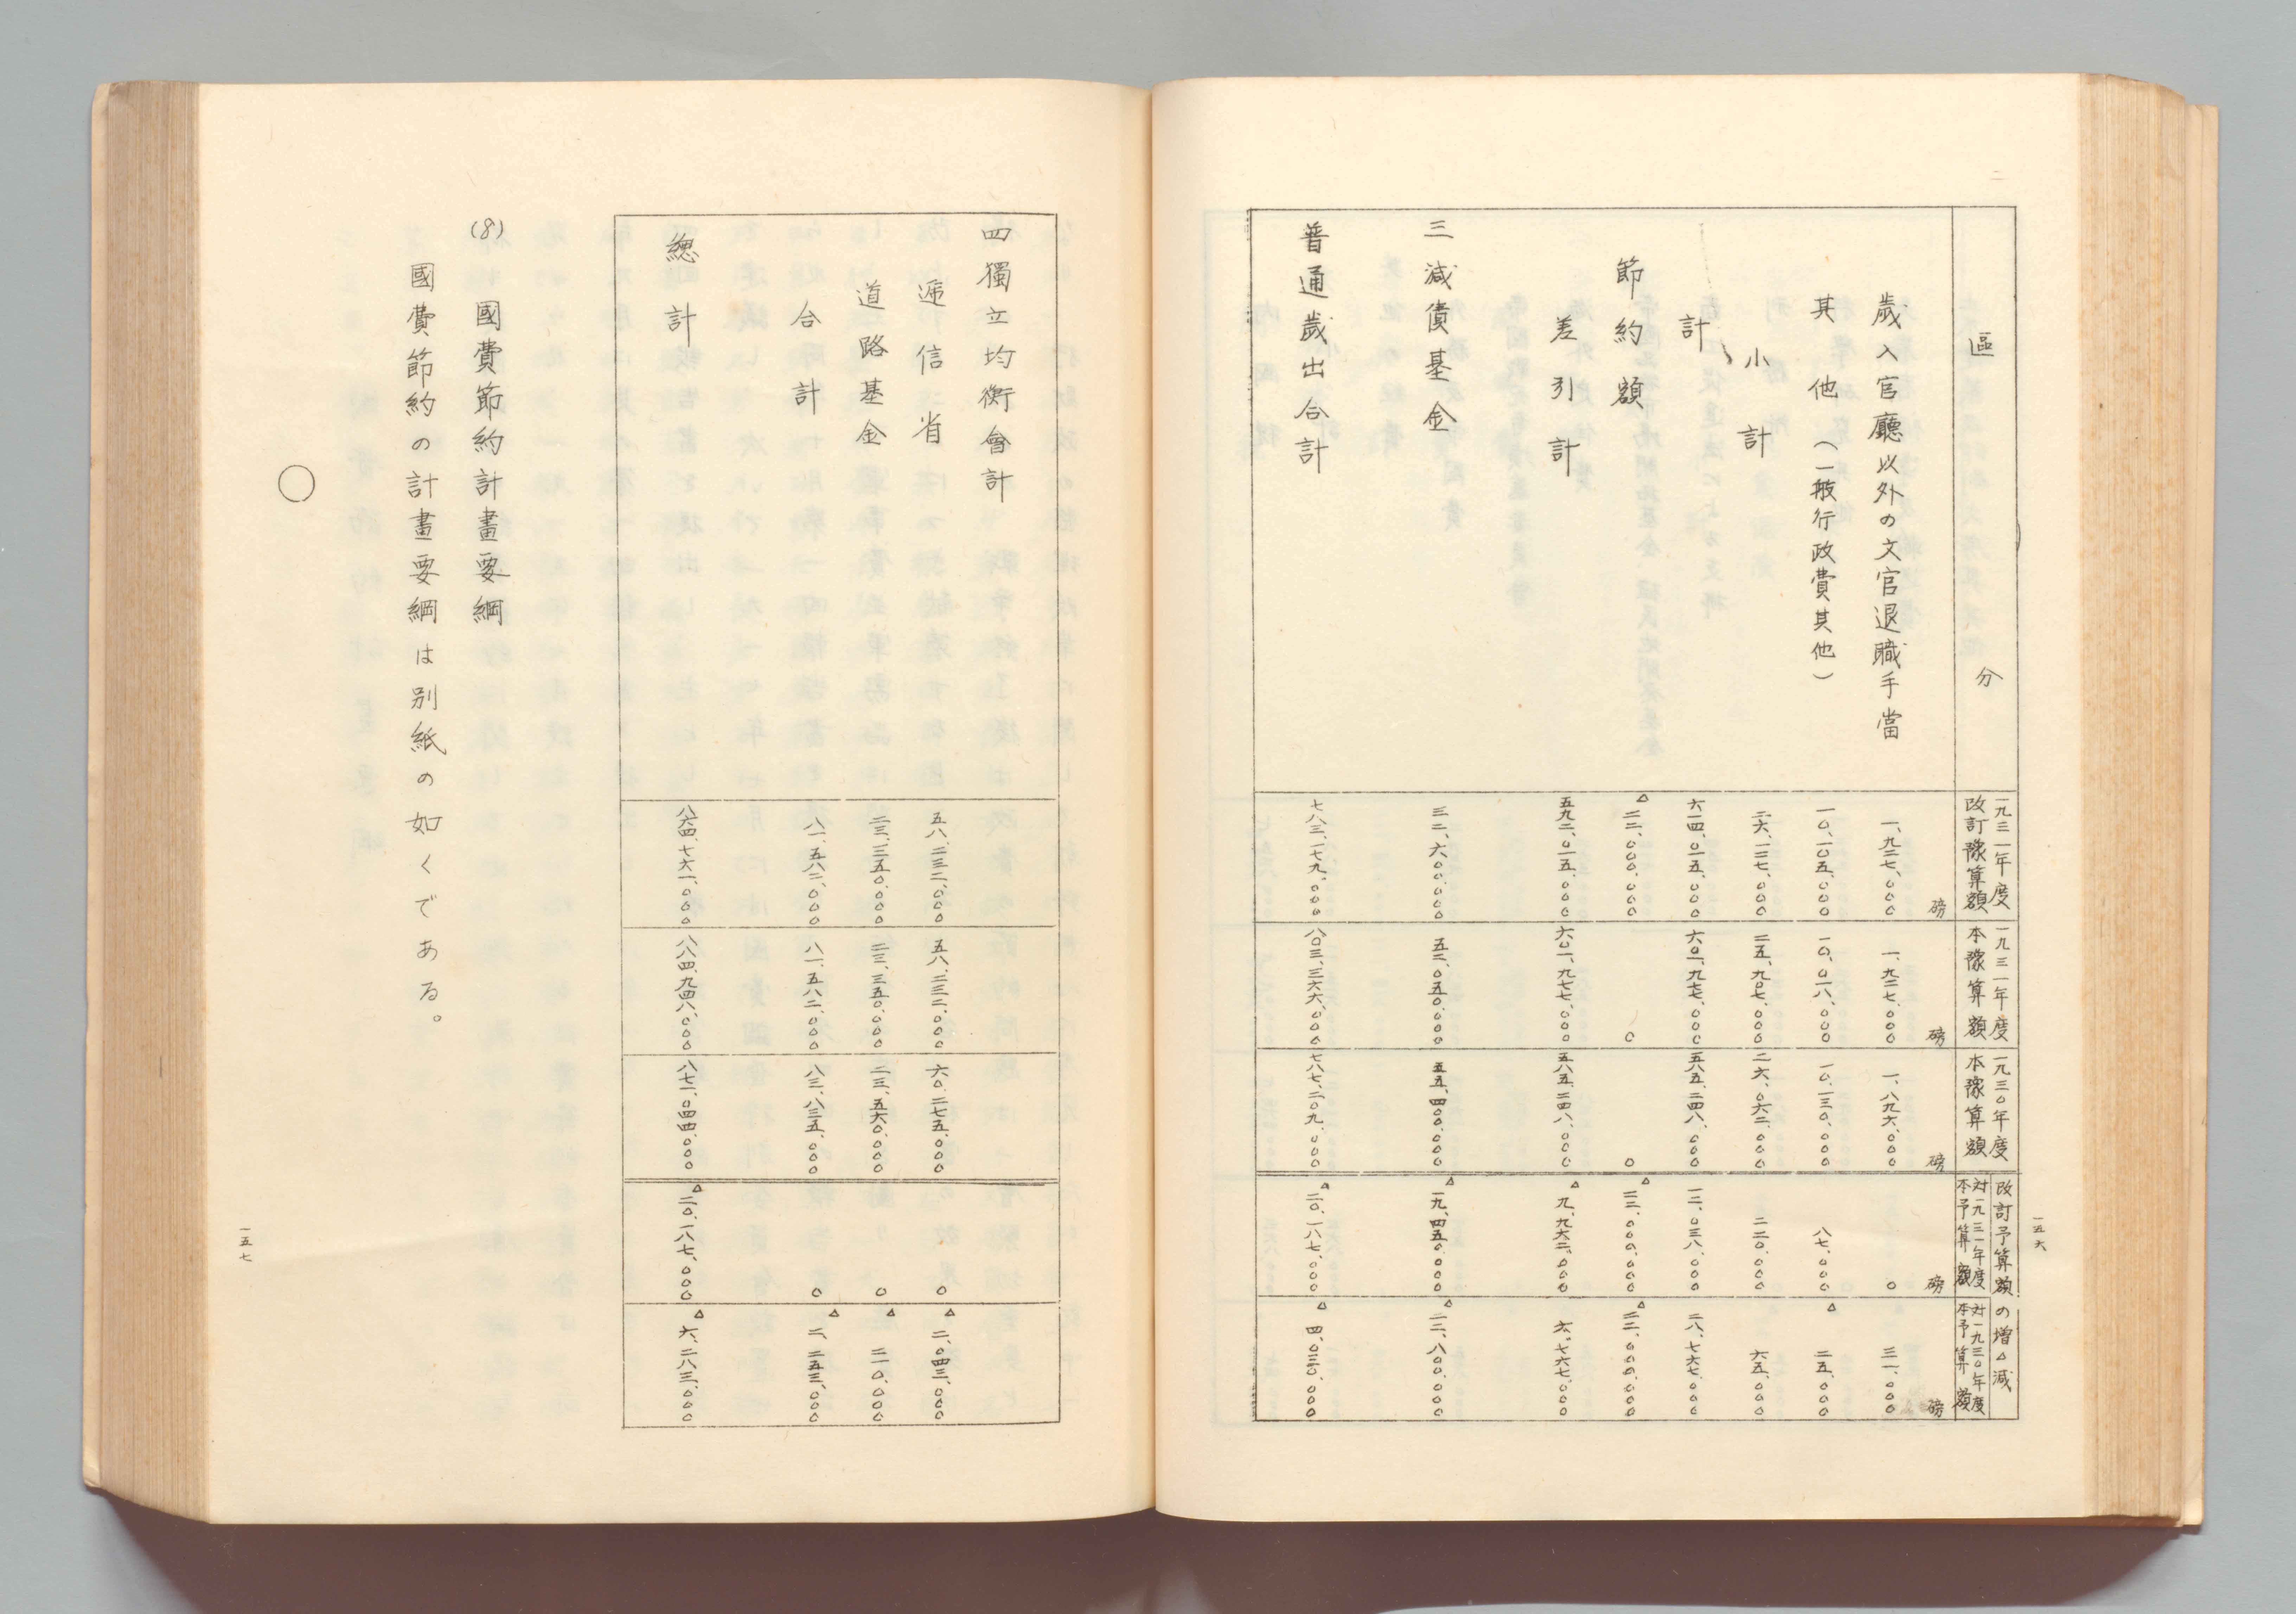 一五六
區分
一九三一年度改訂豫算額
一九三一年度本豫算額
一九三〇年度本豫算額
改訂予算額の増△減
対一九三一年度本予算額
対一九三〇年度本予算額
磅 磅 磅 磅 磅
歳入官廳以外の文官退職手當 一、九二七、〇〇〇 一、九二七、〇〇〇 一、八九六、〇〇〇 〇 三一、〇〇〇
其他(一般行政費其他) 一〇、一〇五、〇〇〇 一〇、〇一八、〇〇〇 一〇、一三〇、〇〇〇 八七、〇〇〇 △二五、〇〇〇
小計 二六、一二七、〇〇〇 二五、九〇七、〇〇〇 二六、〇六二、〇〇〇 二二〇、〇〇〇 六五、〇〇〇
計 六一四、〇一五、〇〇〇 六〇一、九七七、〇〇〇 五八五、二四八、〇〇〇 一二、〇三八、〇〇〇 二八、七六七、〇〇〇
節約額 △二二、〇〇〇、〇〇〇 〇 〇 △二二、〇〇〇、〇〇〇 △二二、〇〇〇、〇〇〇
差引計 五九二、〇一五、〇〇〇 六〇一、九七七、〇〇〇 五八五、二四八、〇〇〇 △九、九六二、〇〇〇 六、七六七、〇〇〇
三減債基金 三二、六〇〇、〇〇〇 五二、〇五〇、〇〇〇 五五、四〇〇、〇〇〇 △一九、四五〇、〇〇〇 △二二、八〇〇、〇〇〇
普通歳出合計 七八三、一七九、〇〇〇 八〇三、三六六、〇〇〇 七八七、二〇九、〇〇〇 △二〇、一八七、〇〇〇 △四、〇三〇、〇〇〇
四獨立均衡會計
遞信省 五八、二三二、〇〇〇 五八、二三二、〇〇〇 六〇、二七五、〇〇〇 〇 △二、〇四三、〇〇〇
道路基金 二三、三五〇、〇〇〇 二三、三五〇、〇〇〇 二三、五六〇、〇〇〇 〇 △二一〇、〇〇〇
合計 八一、五八二、〇〇〇 八一、五八二、〇〇〇 八三、八三五、〇〇〇 〇 △二、二五三、〇〇〇
總計 八六四、七六一、〇〇〇 八八四、九四八、〇〇〇 八七一、〇四四、〇〇〇 △二〇、一八七、〇〇〇 △六、二八三、〇〇〇
(8) 國費節約計畫要綱
國費節約の計畫要綱は別紙の如くである。
○
一五七